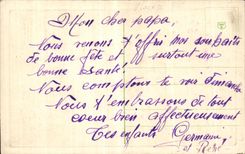 Mon cher papa,
Nous venons t'offrir nos souhaits
de bonne fête et surtout une
bonne santé.
Nous comptons te voir dimanche
Nous t'embrassons de tout
cœur bien affectueusement
Tes enfants Germaine
et René